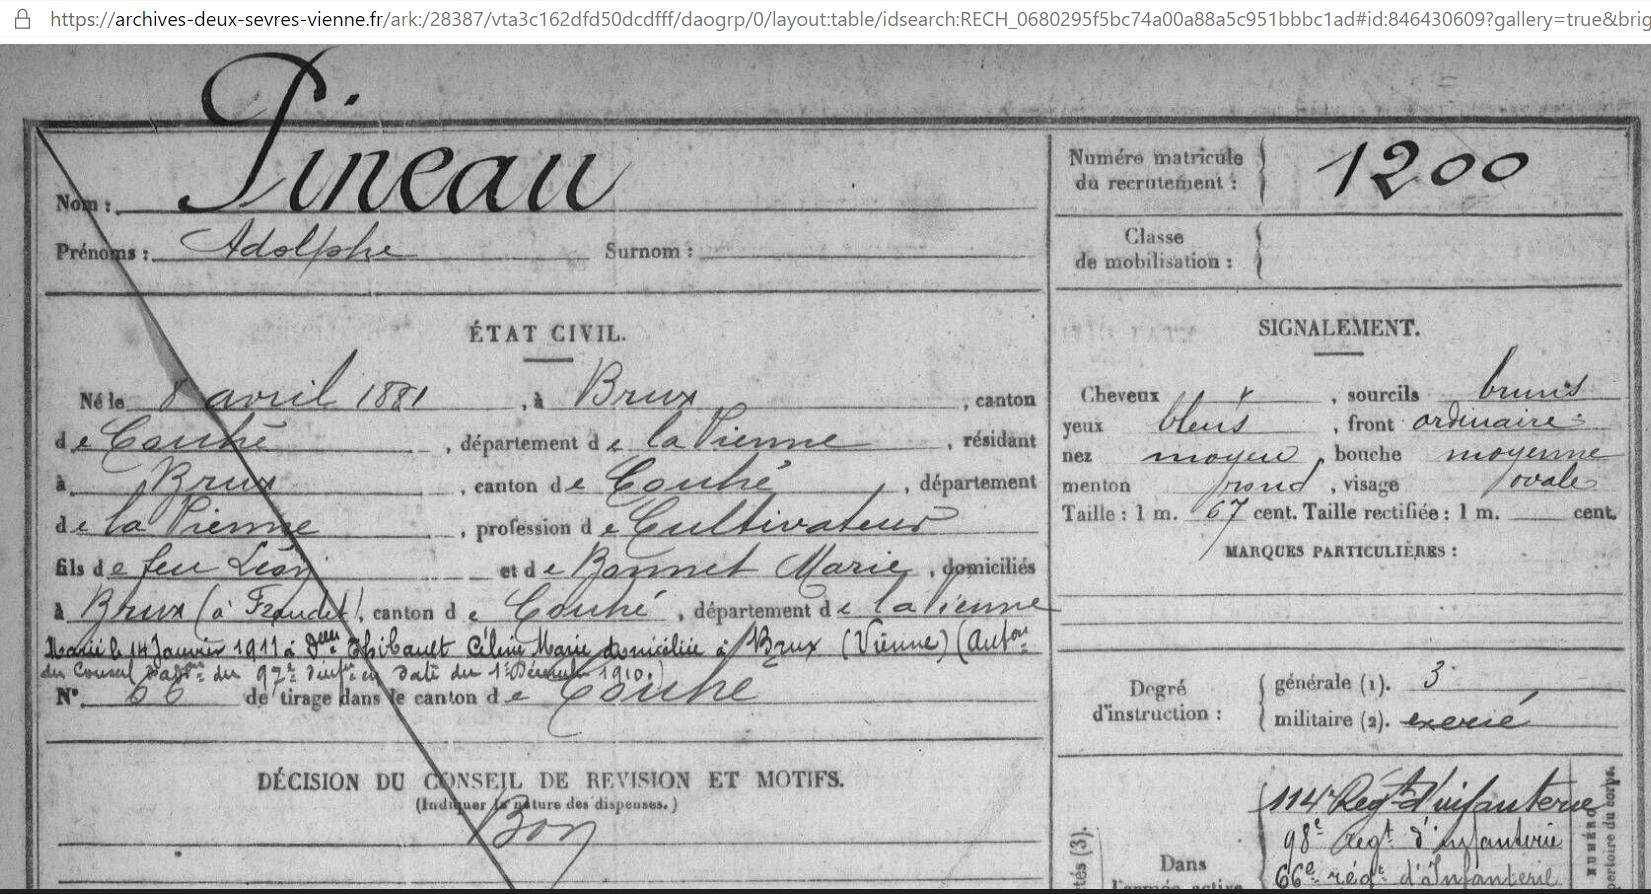 https://archives-deux-sevres-vienne.fr/ark:/28387/vta3c162dfd50dcdfff/daogrp/0/layout:table/idsearch:RECH_0680295f5bc74a00a88a5c951bbbc1ad#id:846430609?gallery=true&brig
Nom : Pineau
Prénoms : Adolphe Surnom :
Numéro matricule du recrutement : 1200
Classe de mobilisation :
ÉTAT CIVIL.
Né le 8 avril 1881, à Brux, canton
de Couhé, département de la Vienne, résidant
à Brux, canton de Couhé, département
de la Vienne, profession de Cultivateur
fils de feu Léon et de Bonnet Marie, domiciliés
à Brux (à Fraudet), canton de Couhé, département de la Vienne
Marié le 14 Janvier 1911 à Delle Thibault Céline Marie domiciliée à Brux (Vienne) (Auton
du Conseil d'adon du 92e d'infrie en date du 1er Décembre 1910.)
N° 66 de tirage dans le canton de Couhé
DÉCISION DU CONSEIL DE REVISION ET MOTIFS.
(Indiquer la nature des dispenses.)
Bon
SIGNALEMENT.
Cheveux, sourcils bruns
yeux bleus, front ordinaire
nez moyen, bouche moyenne
menton rond, visage ovale
Taille : 1 m. 67 cent. Taille rectifiée : 1 m. cent.
MARQUES PARTICULIÈRES :
Degré d'instruction :
générale (1). 3
militaire (2). exercé
114e Régt d'infanterie
98e Régt d'Infanterie
Dans
66e régt d'Infanterie
l'armée active
NUMÉRO
pertoire du corps.
tés (3).